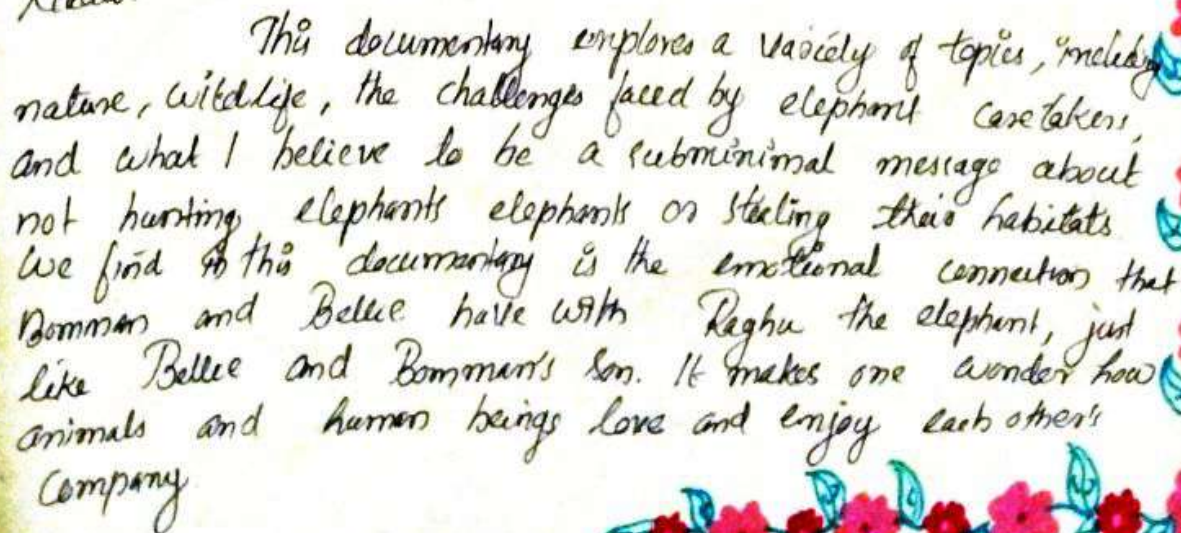 This documentary explores a variety of topics, including
nature, wildlife, the challenges faced by elephant caretakers,
and what I believe to be a subminimal message about
not hunting elephants elephants or stealing their habitats
We find in this documentary is the emotional connection that
Bomman and Bellie have with Raghu the elephant, just
like Bellie and Bomman's son. It makes one wonder how
animals and human beings love and enjoy each other's
company